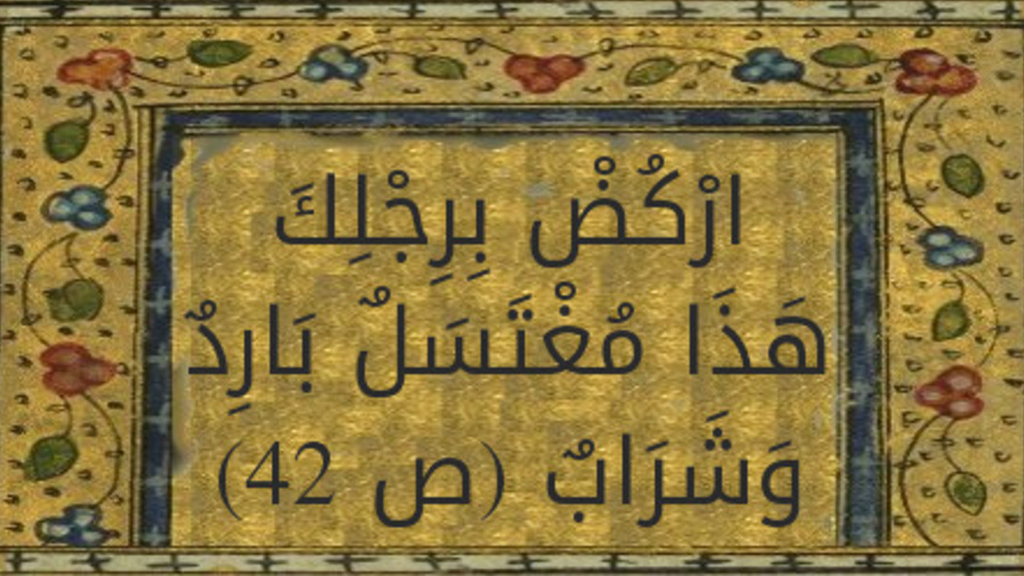 ارْكُضْ بِرِجْلِكَ
هَذَا مُغْتَسَلٌ بَارِدٌ
وَشَرَابٌ (ص 42)